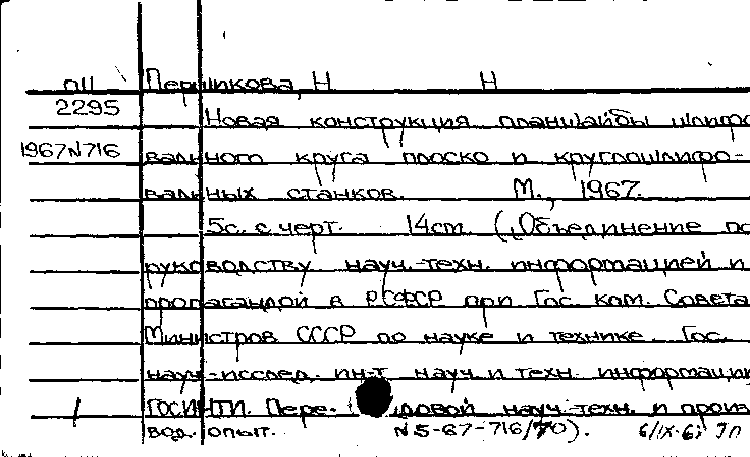 пII Першикова, Н Н
2295 Новая конструкция планшайбы шлифо
1967N716 вального круга плоско и круглошлифо-
вальных станков. М., 1967.
5с. с черт. 14cm. („Объединение по
руководству науч.-техн. информацией и
пропагандой в РСФСР при Гос. ком. Совета
Министров СССР по науке и технике. Гос.
науч-исслед. ин-т науч. и техн. информации
ГОСИНТИ. Пере- довой науч-техн. и произ
вод. опыт. N 5-67-716/70).